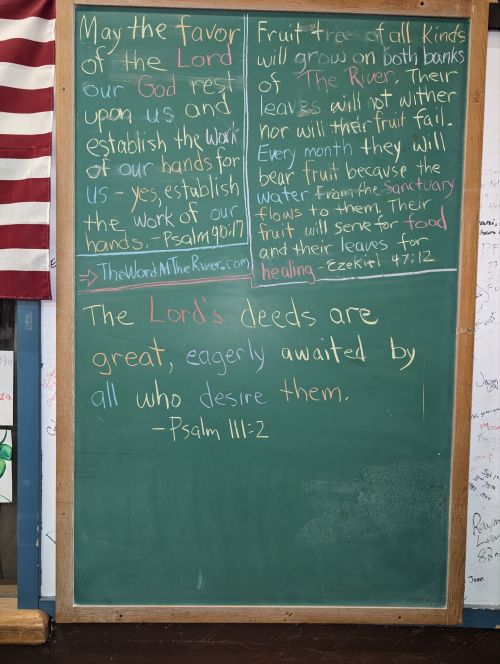 May the favor
of the Lord
our God rest
upon us and
establish the work
of our hands for
us - yes, establish
the work of our
hands. - Psalm 90:17
→ TheWordAtTheRiver.com
Fruit trees of all kinds
will grow on both banks
of The River. Their
leaves will not wither
nor will their fruit fail.
Every month they will
bear fruit because the
water from the sanctuary
flows to them. Their
fruit will serve for food
and their leaves for
healing - Ezekiel 47:12
The Lord's deeds are
great, eagerly awaited by
all who desire them.
- Psalm 111:2